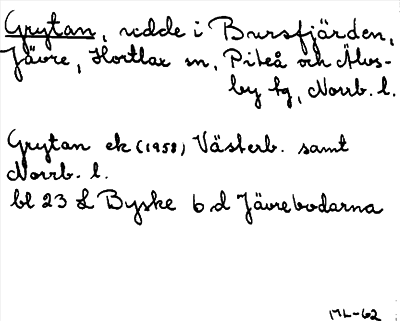 Grytan, udde i Bursfjärden,
Jävre, Hortlax sn, Piteå och Älvs-
by tg, Norrb. l.
Grytan ek (1958) Västerb. samt
Norrb. l.
bl 23 L Byske 6 d Jävrebodarna
ML-62